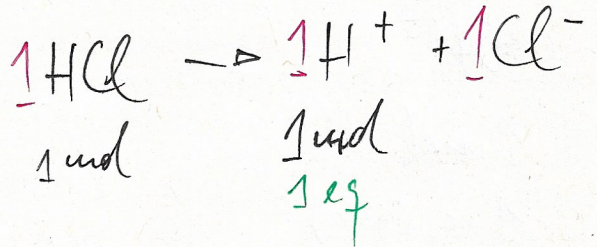 1HCl → 1H⁺ + 1Cl⁻
1 mol 1 mol
1 eq